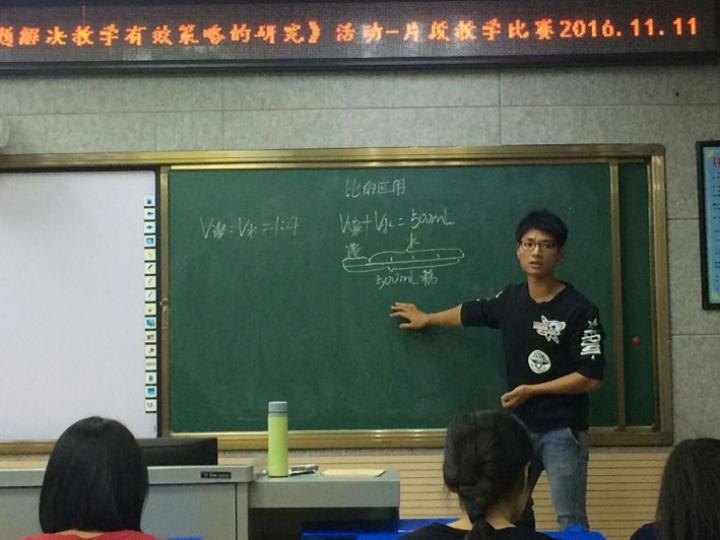 题解决教学有效策略的研究》活动-片段教学比赛2016.11.11
比的应用
V浓:V水=1:4
V浓+V水=500mL
浓
水
500mL稀